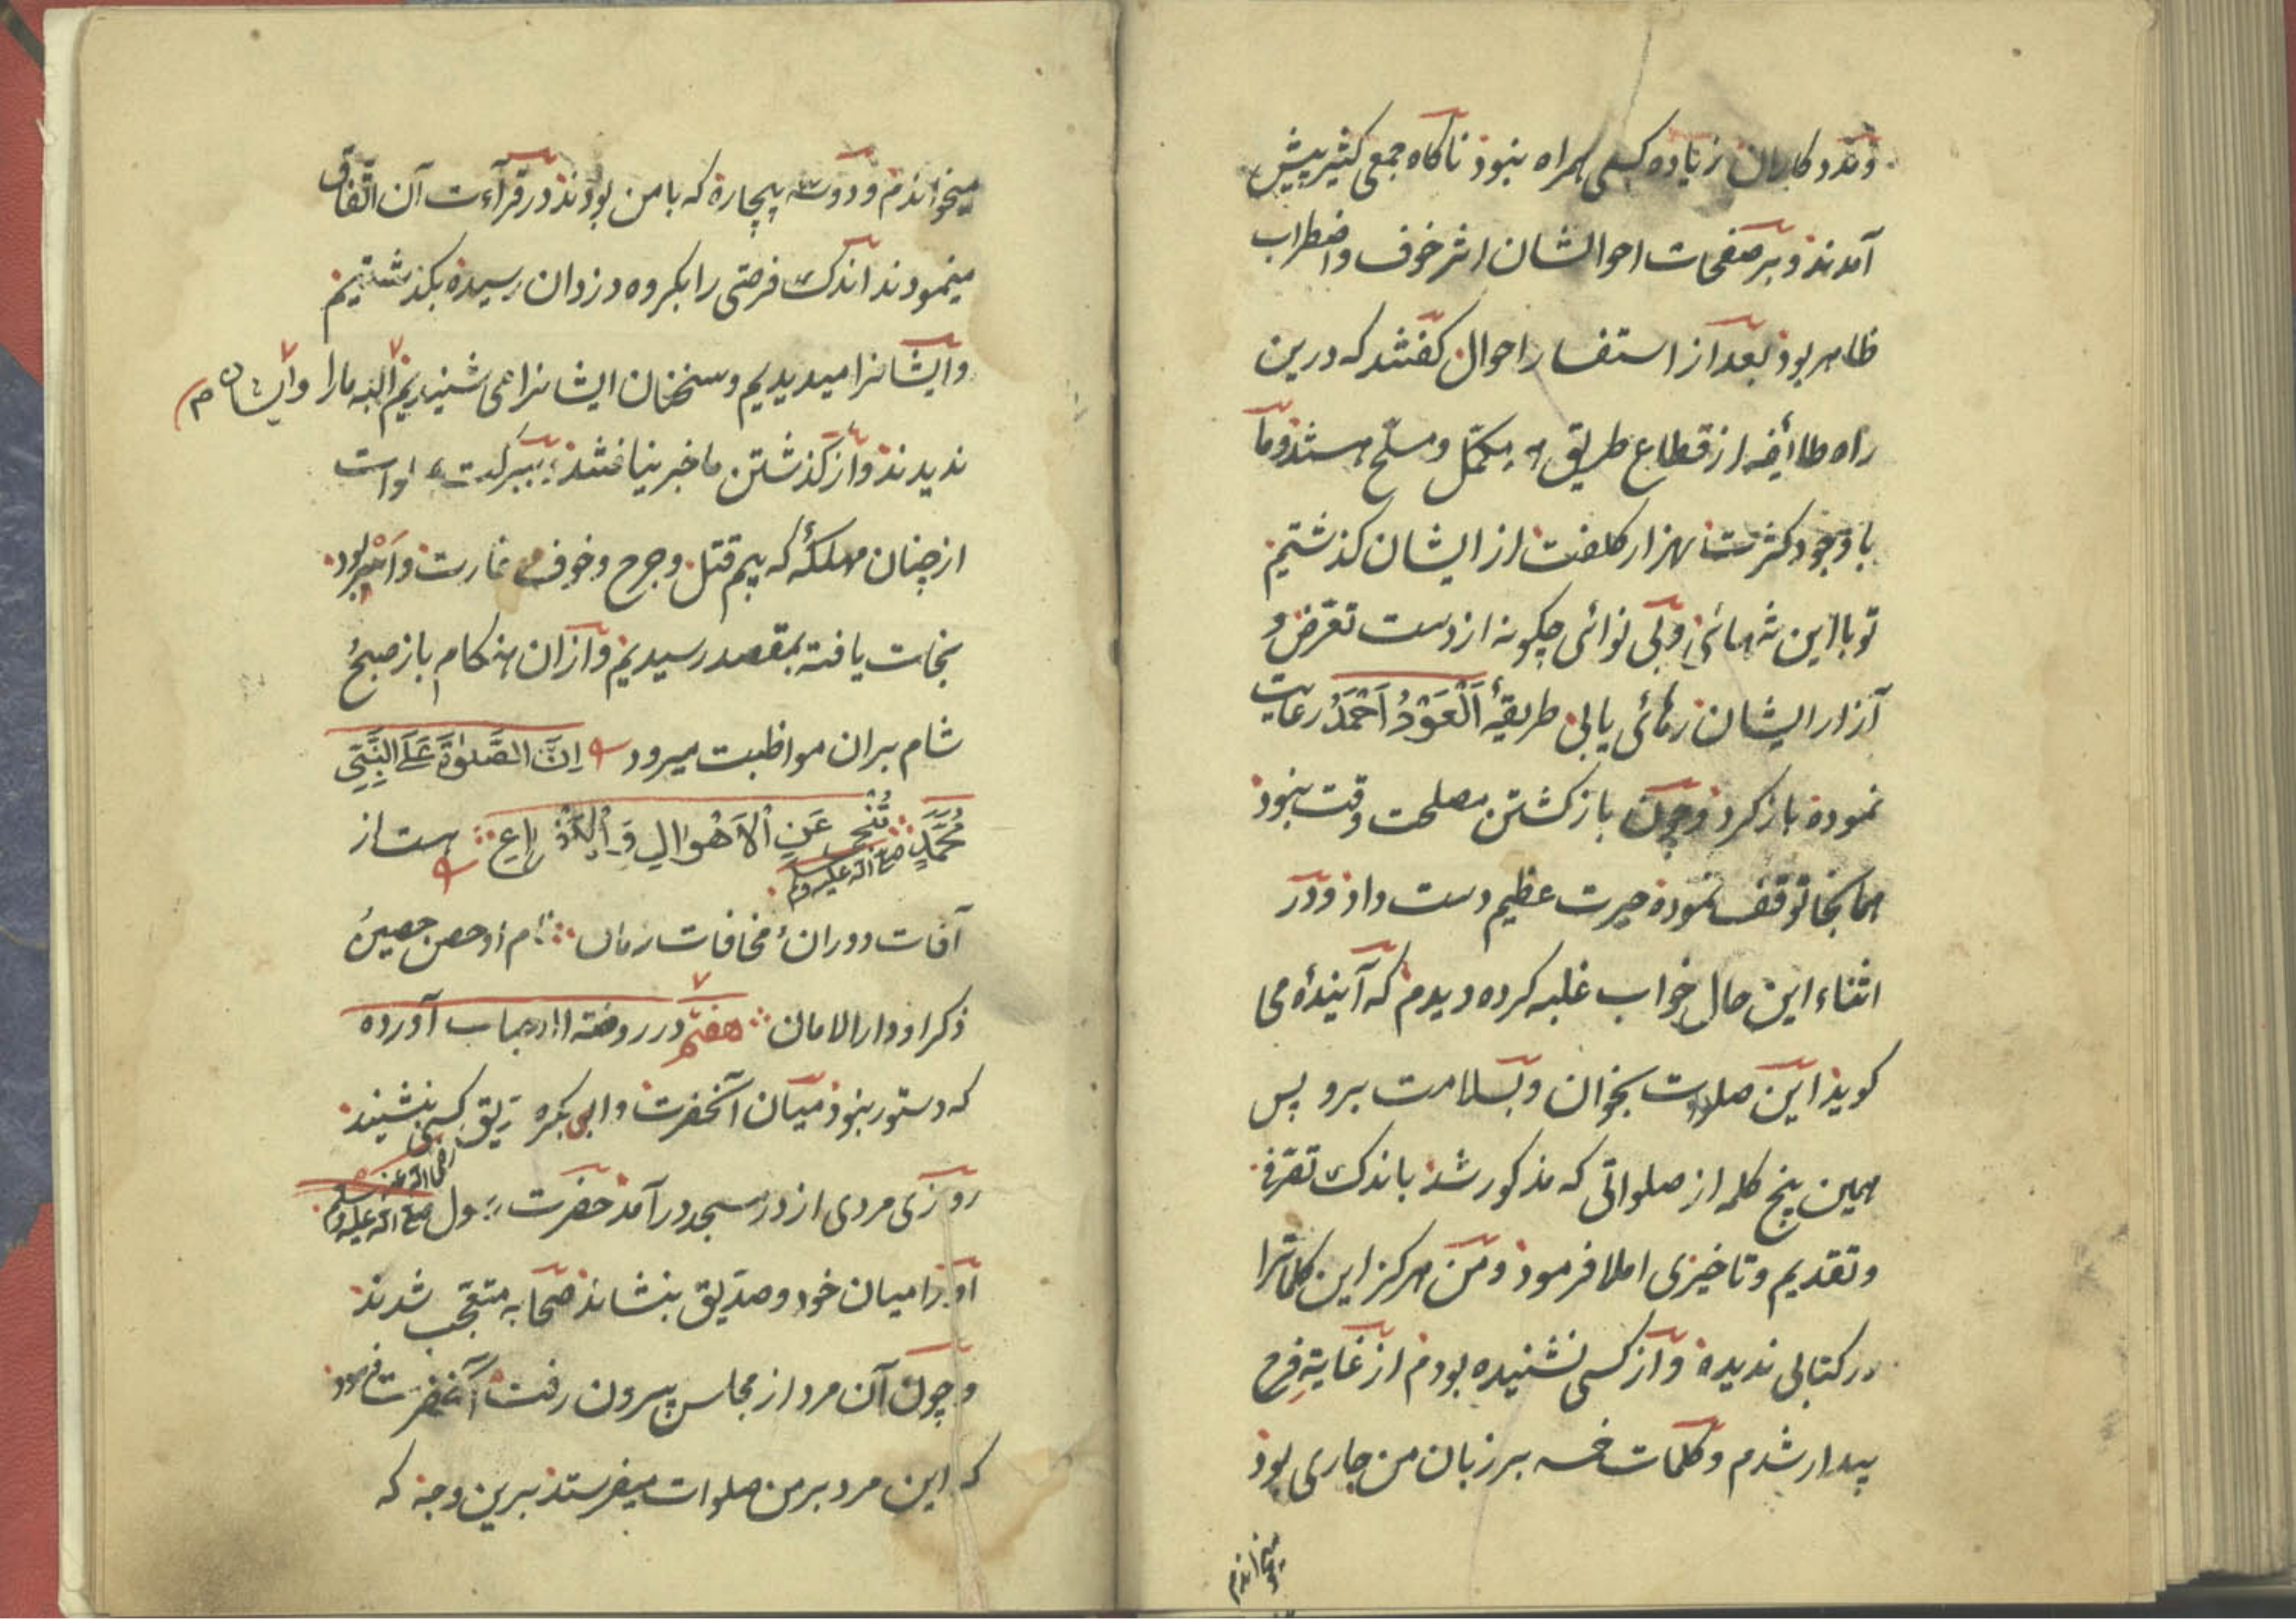 و مددکاران زیاده کسی همراه نبود ناکاه جمعی کثیر پیش
آمدند و بر صفحات احوالشان اثر خوف و اضطراب
ظاهر بود بعد از استفسار احوال کفتند که درین
راه طائفه از قطاع طریق مکمّل و مسلّح هستند و ما
با وجود کثرت بهزار کلفت از ایشان کذشتیم
تو با این تنهائی و بی نوائی چکونه از دست تعرّض و
آزار ایشان رهائی یابی طریقهٔ اَلْعَوْدُ اَحْمَدُ رعایت
نموده باز کرد و چون باز کشتن مصلحت وقت نبود
همانجا توقف نموده حیرت عظیم دست داد و در
اثناء این حال خواب غلبه کرده دیدم که آیندهٔ می
کوید این صلوات بخوان و بسلامت برو پس
همین پنج کلمه از صلواتی که مذکور شد باندک تصرّفی
و تقدیم و تاخیری املا فرمود و من هرکز این کلماترا
در کتابی ندیده و از کسی نشنیده بودم از غایة فرح
بیدار شدم و کلمات خمسه بر زبان من جاری بود
میخواندم
میخواندم و دو سه بیچاره که با من بودند در قرآءت آن اتّفاق
مینمودند اندک فرصتی را بکروه دزدان رسیده بکذشتیم
و ایشانرا میدیدیم و سخنان ایشانرا می شنیدیم البته مارا و ایشان
ندیدند و از کذشتن ما خبر نیافتند ببرکت صلوات
از چنان مهلکهٔ که بیم قتل و جرح و خوف غارت و اسر بود
نجات یافته بمقصد رسیدیم و از آن هنکام باز صبح و
شام بران مواظبت میرود اِنَّ الصَّلٰوةَ عَلَی النَّبِیّ
مُحَمَّدٍ صلی الله علیه وسلم تُنْجِی عَنِ الْاَهْوَالِ وَ هست از
آفات دوران و مخافات زمان نام او حصن حصین و
ذکر او دار الامان هفتم در روضة الاحباب آورده
که دستور نبود میان آنحضرت و ابی بکر صدیق رضی الله عنه کسی بنشیند
روزی مردی از در مسجد درآمد حضرت رسول صلی الله علیه وسلم
او را میان خود و صدّیق بنشاند صحابه متعجّب شدند
و چون آن مرد از مجلس بیرون رفت آنحضرت فرمود
که این مرد بر من صلوات میفرستد برین وجه که